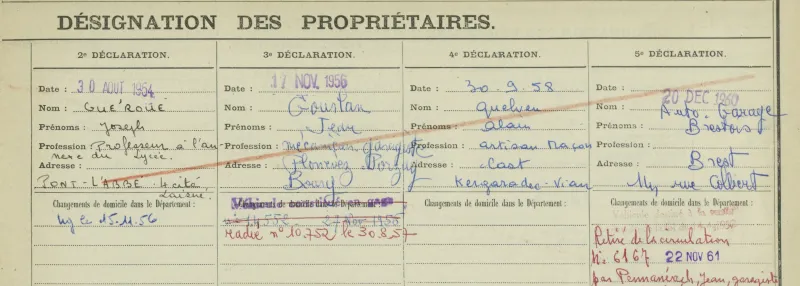 DÉSIGNATION DES PROPRIÉTAIRES.
2e DÉCLARATION.
Date : 30 AOUT 1954
Nom : GUÉROUÉ
Prénoms : Joseph
Profession : Professeur à l'an-
nexe du Lycée.
Adresse :
PONT-L'ABBÉ 4 cité
Changements de domicile dans le Département :
le 15.11.56
3e DÉCLARATION.
Date : 17 NOV. 1956
Nom : Goustan
Prénoms : Jean
Profession : mécanicien garagiste
Adresse : Plonévez-Porzay
Bourg
Changements de domicile dans le Département :
Véhicule
n° 14552 27 Nov 1956
radié n° 10.752 le 30.8.57
4e DÉCLARATION.
Date : 30-9-58
Nom : Quelven
Prénoms : Alain
Profession : artisan Maçon
Adresse : Cast
Kergaradec-Vian
Changements de domicile dans le Département :
5e DÉCLARATION.
Date : 20 DEC 1960
Nom : Auto-Garage
Prénoms : Brestois
Profession :
Adresse : Brest
rue Colbert
Changements de domicile dans le Département :
Retiré de la circulation
N° 6167 22 NOV 61
par Jean, garagiste